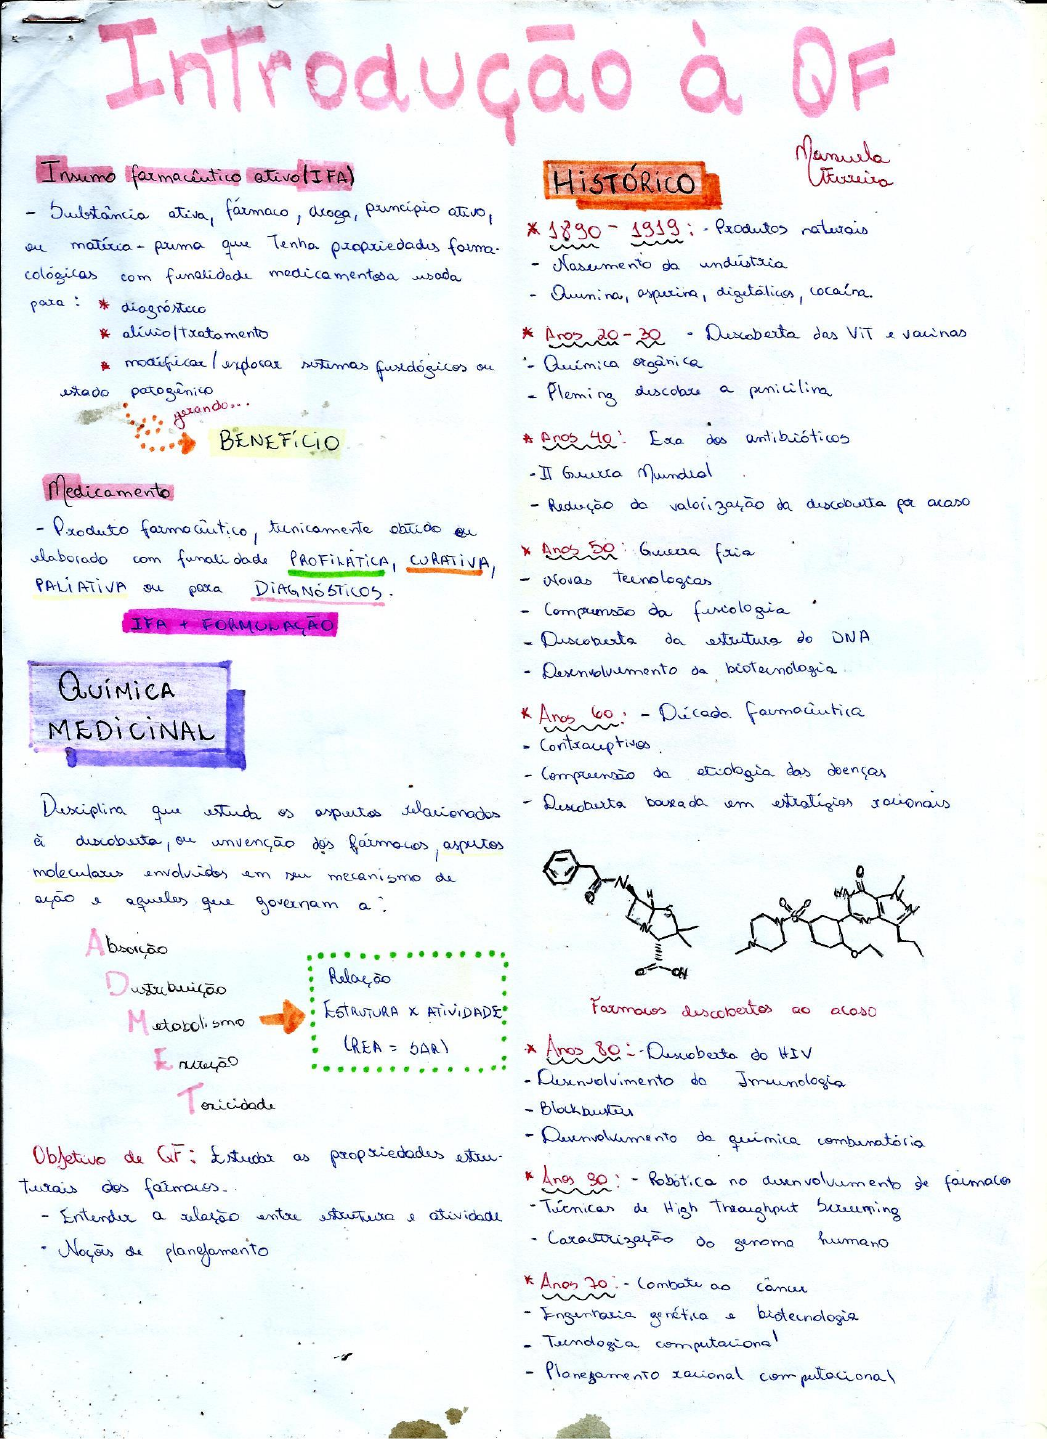 Introdução à QF
Manuela
Ferreira
Insumo farmacêutico ativo (IFA)
- Substância ativa, fármaco, droga, princípio ativo,
ou matéria-prima que tenha propriedades farma-
cológicas com finalidade medicamentosa usada
para: * diagnóstico
* alívio/tratamento
* modificar/explorar sistemas fisiológicos ou
estado patogênico
gerando...
BENEFÍCIO
Medicamento
- Produto farmacêutico, tecnicamente obtido ou
elaborado com finalidade PROFILÁTICA, CURATIVA,
PALIATIVA ou para DIAGNÓSTICOS.
IFA + FORMULAÇÃO
QUÍMICA
MEDICINAL
Disciplina que estuda os aspectos relacionados
à descoberta, ou invenção dos fármacos, aspectos
moleculares envolvidos em seu mecanismo de
ação e aqueles que governam a:
Absorção
Distribuição
Metabolismo
Excreção
Toxicidade
Relação
ESTRUTURA X ATIVIDADE
(REA = SAR)
Objetivo de QF: Estudar as propriedades estru-
turais dos fármacos.
- Entender a relação entre estrutura e atividade
- Noções de planejamento
HISTÓRICO
* 1890 - 1919: - Produtos naturais
- Nascimento da indústria
- Quinina, aspirina, digitálicos, cocaína.
* Anos 20-30 - Descoberta das VIT e vacinas
- Química orgânica
- Fleming descobre a penicilina
* Anos 40: Era dos antibióticos
- II Guerra Mundial
- Redução da valorização da descoberta por acaso
* Anos 50: Guerra fria
- Novas tecnologias
- Compreensão da fisiologia
- Descoberta da estrutura do DNA
- Desenvolvimento da biotecnologia.
* Anos 60: - Década farmacêutica
- Contraceptivos.
- Compreensão da etiologia das doenças
- Descoberta baseada em estratégias racionais
O N H S N O OH
O HN N N O S N N O
Fármacos descobertos ao acaso
* Anos 80: - Descoberta do HIV
- Desenvolvimento da Imunologia
- Blockbusters
- Desenvolvimento da química combinatória
* Anos 90: - Robótica no desenvolvimento de fármacos
- Técnicas de High Throughput Screening
- Caracterização do genoma humano
* Anos 70: - Combate ao câncer
- Engenharia genética e biotecnologia
- Tecnologia computacional
- Planejamento racional computacional